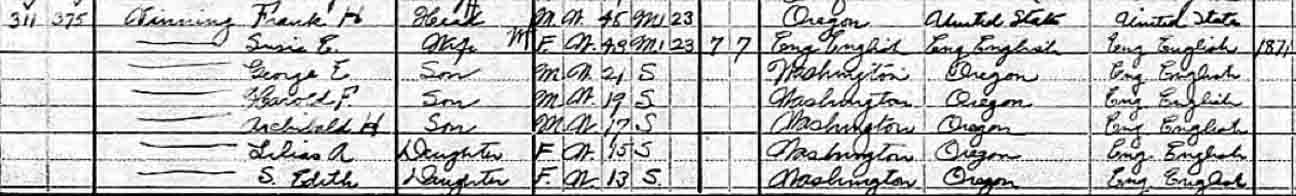 311 375 Frank H Head M W 45 M1 23 Oregon United State United State
Susie E. Wife F. W. 49 M1 23 7 7 Eng English Eng English Eng English 1871
George E. Son M. W. 21 S Washington Oregon Eng English
Harold F. Son M. W. 19 S Washington Oregon Eng English
Archibald H Son M. W. 17 S Washington Oregon Eng English
Lilias A Daughter F. W. 15 S Washington Oregon Eng. English
S. Edith Daughter F. W. 13 S. Washington Oregon Eng English